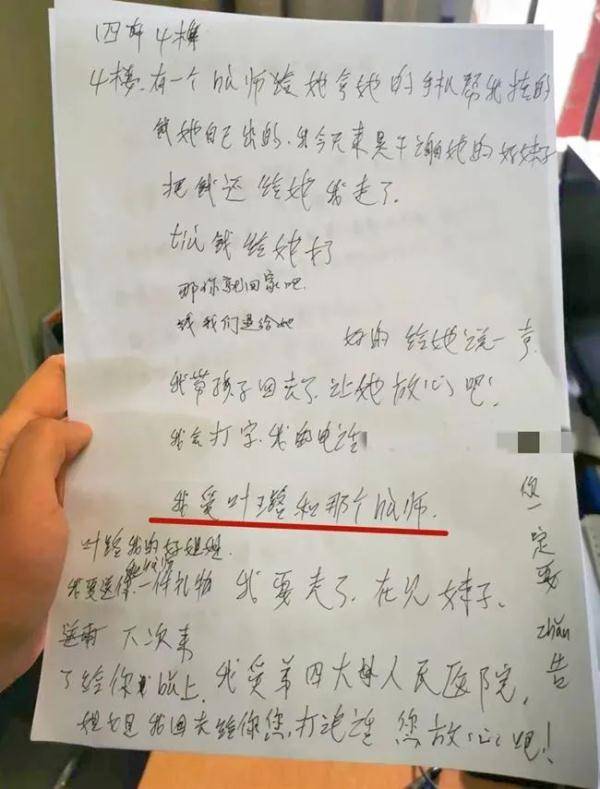 四市4楼
4楼.有一个hù师给她拿她的手机帮我挂的
钱她自己出的.我今天来是干谢她的好妹子
把钱还给她我走了.
tuì钱给她打
那你就回家吧.
钱我们退给她
好的 给她说一声
我带孩子回去了.让她放心了吧!
我会打字.我的电话
我爱叶璐和那个hù师.
叶璐我的好姐姐.
我要送你一件礼物 我要走了.在见妹子.
下次来
了给你 上.我爱第四大 人民医院.
我回去给你您,打电话 您放心吧!
您一定要zhuǎn告